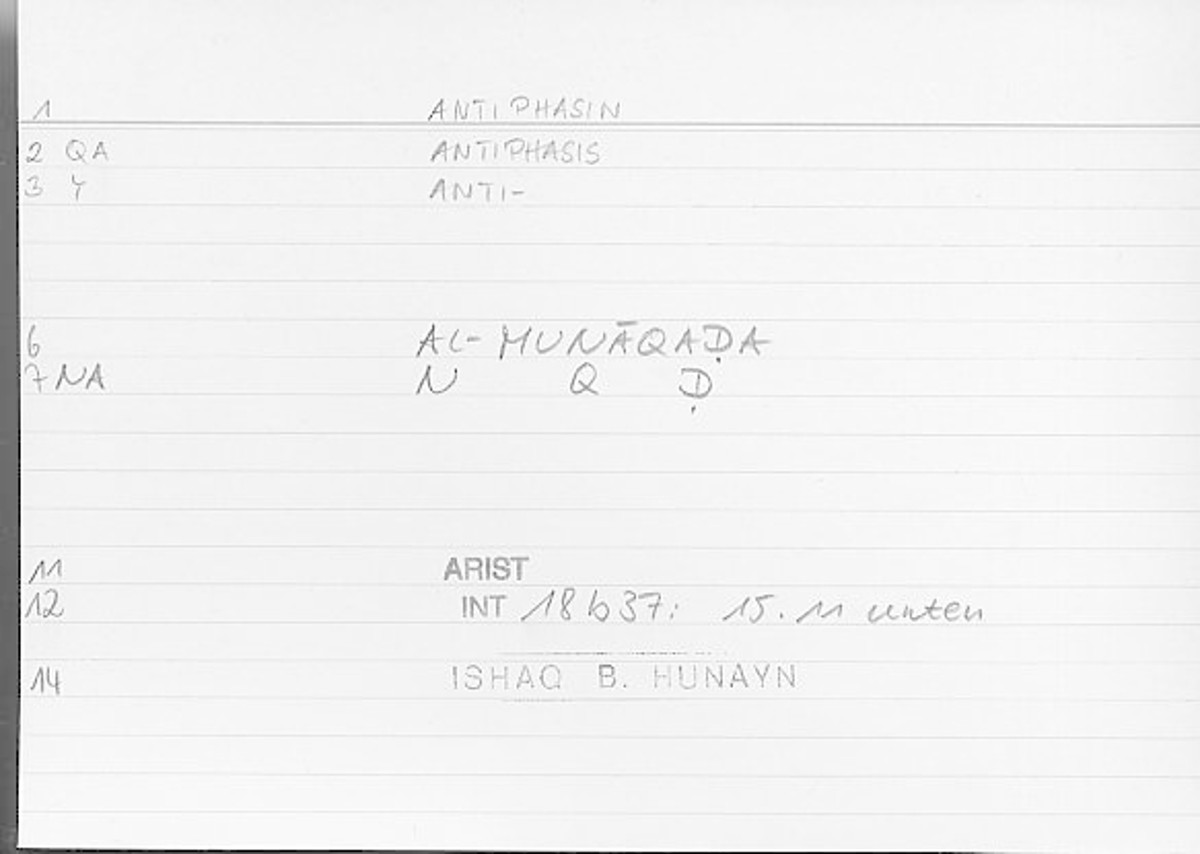 1 ANTIPHASIN
2 QA ANTIPHASIS
3 Y ANTI-
6 AL-MUNĀQAḌA
7 NA N Q Ḍ
11 ARIST
12 INT 18 b 37: 15. 11 unten
14 ISHAQ B. HUNAYN